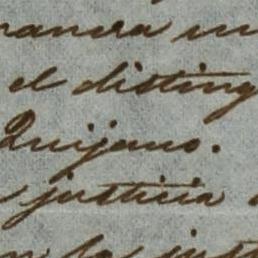 manera in
el disting
Quijano.
justicia
la just